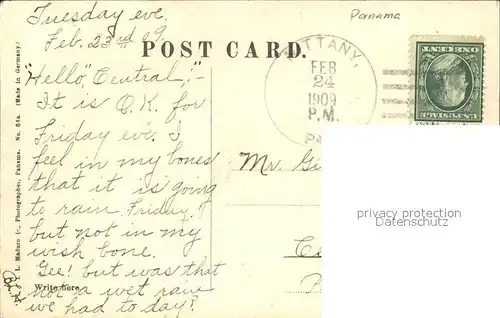 Tuesday eve,
Feb. 23rd 09.
Panama
POST CARD.
"Hello", Central,!-
It is O.K. for
Friday eve. I
feel in my bones
that it is going
to rain Friday!
but not in my
wish bone.
Gee! but was that
not a wet rain
we had to day?
Write here
I. L. Maduro Jr., Photographer, Panama. No. 64a. (Made in Germany.)
TTANY,
FEB
24
1909
P.M.
PA
ONE CENT
U.S. POSTAGE
Mr. Gi
privacy protection
Datenschutz